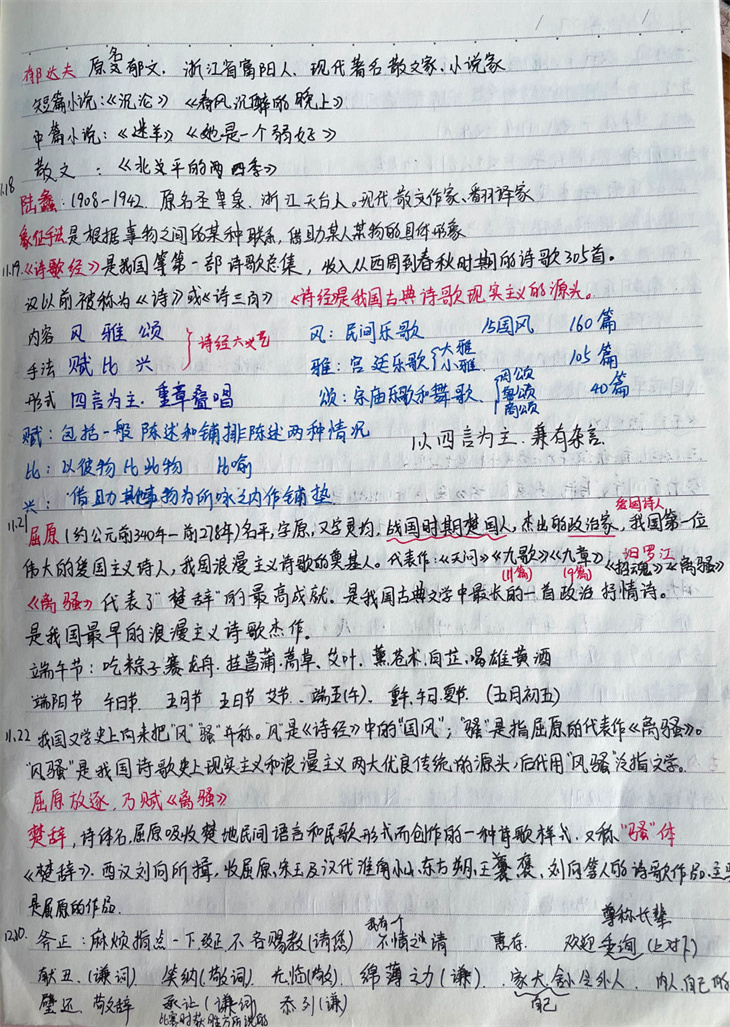 郁达夫 原名郁文，浙江省富阳人，现代著名散文家、小说家
短篇小说：《沉沦》《春风沉醉的晚上》
中篇小说：《迷羊》《她是一个弱女子》
散文：《北平的四季》
11.18
陆蠡：1908-1942. 原名圣泉，浙江天台人。现代散文作家、翻译家
象征手法是根据事物之间的某种联系，借助某人某物的具体形象
11.19.《诗歌经》是我国第一部诗歌总集，收入从西周到春秋时期的诗歌305首。
汉以前被称为《诗》或《诗三百》 《诗经》是我国古典诗歌现实主义的源头。
内容 风 雅 颂 诗经六义 风：民间乐歌 15国风 160篇
手法 赋 比 兴 雅：宫廷乐歌 大雅 小雅 105篇
形式 四言为主，重章叠唱 颂：宗庙乐歌和舞歌 周颂 鲁颂 商颂 40篇
赋：包括一般陈述和铺排陈述两种情况 以四言为主，兼有杂言.
比：以彼物比此物 比喻
兴：借助其他事物为所咏之内作铺垫.
爱国诗人
11.21 屈原(约公元前340年—前278年)名平，字原，又字灵均，战国时期楚国人，杰出的政治家，我国第一位
伟大的爱国主义诗人，我国浪漫主义诗歌的奠基人。代表作：《天问》《九歌》(11篇)《九章》(9篇)《招魂》《离骚》 汨罗江
《离骚》代表了"楚辞"的最高成就。是我国古典文学中最长的一首政治抒情诗。
是我国最早的浪漫主义诗歌杰作。
端午节：吃粽子.赛龙舟.挂菖蒲.蒿草、艾叶.薰苍术.白芷.喝雄黄酒
端阳节 午日节. 五月节 五日节 艾节. 端五(午). 重午.午日.夏节. (五月初五)
11.22 我国文学史上向来把"风""骚"并称。"风"是《诗经》中的"国风"；"骚"是指屈原的代表作《离骚》。
"风骚"是我国诗歌史上现实主义和浪漫主义两大优良传统的源头，后代用"风骚"泛指文学。
屈原放逐，乃赋《离骚》
楚辞，诗体名，屈原吸收楚地民间语言和民歌形式而创作的一种诗歌样式.又称"骚"体
《楚辞》. 西汉刘向所辑，收屈原、宋玉及汉代淮南小山、东方朔、王褒、刘向等人的诗歌作品.主要
是屈原的作品.
我有一个 尊称长辈
12.10. 斧正：麻烦指点一下、改正 不吝赐教(请您) 不情之请 惠存. 欢迎垂询(上对下)
献丑.(谦词) 笑纳.(敬词) 光临(敬) 绵薄之力(谦). 家大舍小令外人. 内人.自己的
自己
璧还. 敬辞 承让(谦词) 忝列(谦)
比赛时获胜方所说的